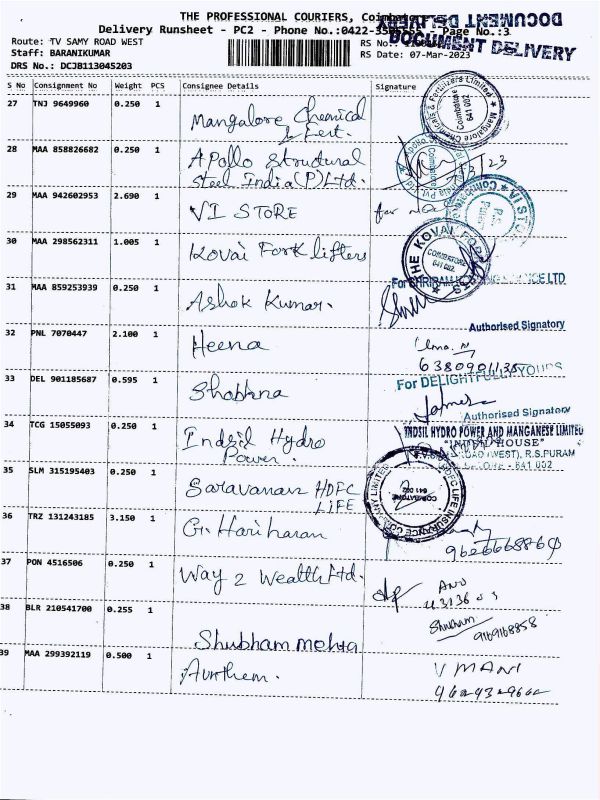 THE PROFESSIONAL COURIERS, Coimbatore
DOCUMENT DELIVERY
DOCUMENT DELIVERY
Delivery Runsheet - PC2 - Phone No.:0422- Page No.:3
Route: TV SAMY ROAD WEST RS No.:
Staff: BARANIKUMAR RS Date: 07-Mar-2023
DRS No.: DCJB113045203
S No Consignment No Weight PCS Consignee Details Signature
27 TNJ 9649960 0.250 1 Mangalore Chemical & Fert.
Mangalore Chemicals & Fertilizers Limited
Coimbatore 641 002
28 MAA 858826682 0.250 1 Apollo Structural
Steel India (P) Ltd.
29 MAA 942602953 2.690 1 VI STORE
VI STORE
30 MAA 298562311 1.005 1 Kovai Fork lifters
THE KOVAI FORK
COIMBATORE 641 002
31 MAA 859253939 0.250 1 Ashok Kumar.
Authorised Signatory
32 PNL 7070447 2.100 1 Heena
33 DEL 901185687 0.595 1 Shobana
For DELIGHTFULLY YOURS
Authorised Signatory
34 TCG 15055093 0.250 1 Indsil Hydro
Power.
INDSIL HYDRO POWER AND MANGANESE LIMITED
"INDSIL HOUSE"
(WEST), R.S.PURAM
COIMBATORE - 641 002
35 SLM 315195403 0.250 1 Saravanan HDFC
LIFE
HDFC LIFE INSURANCE COMPANY LIMITED
COIMBATORE 641 002
36 TRZ 131243185 3.150 1 G. Hariharan
37 PON 4516506 0.250 1 Way 2 Wealth Ltd.
38 BLR 210541700 0.255 1 Shubham mehra
Shubham
9169168858
39 MAA 299392119 0.500 1 Aurthem.
V MANI